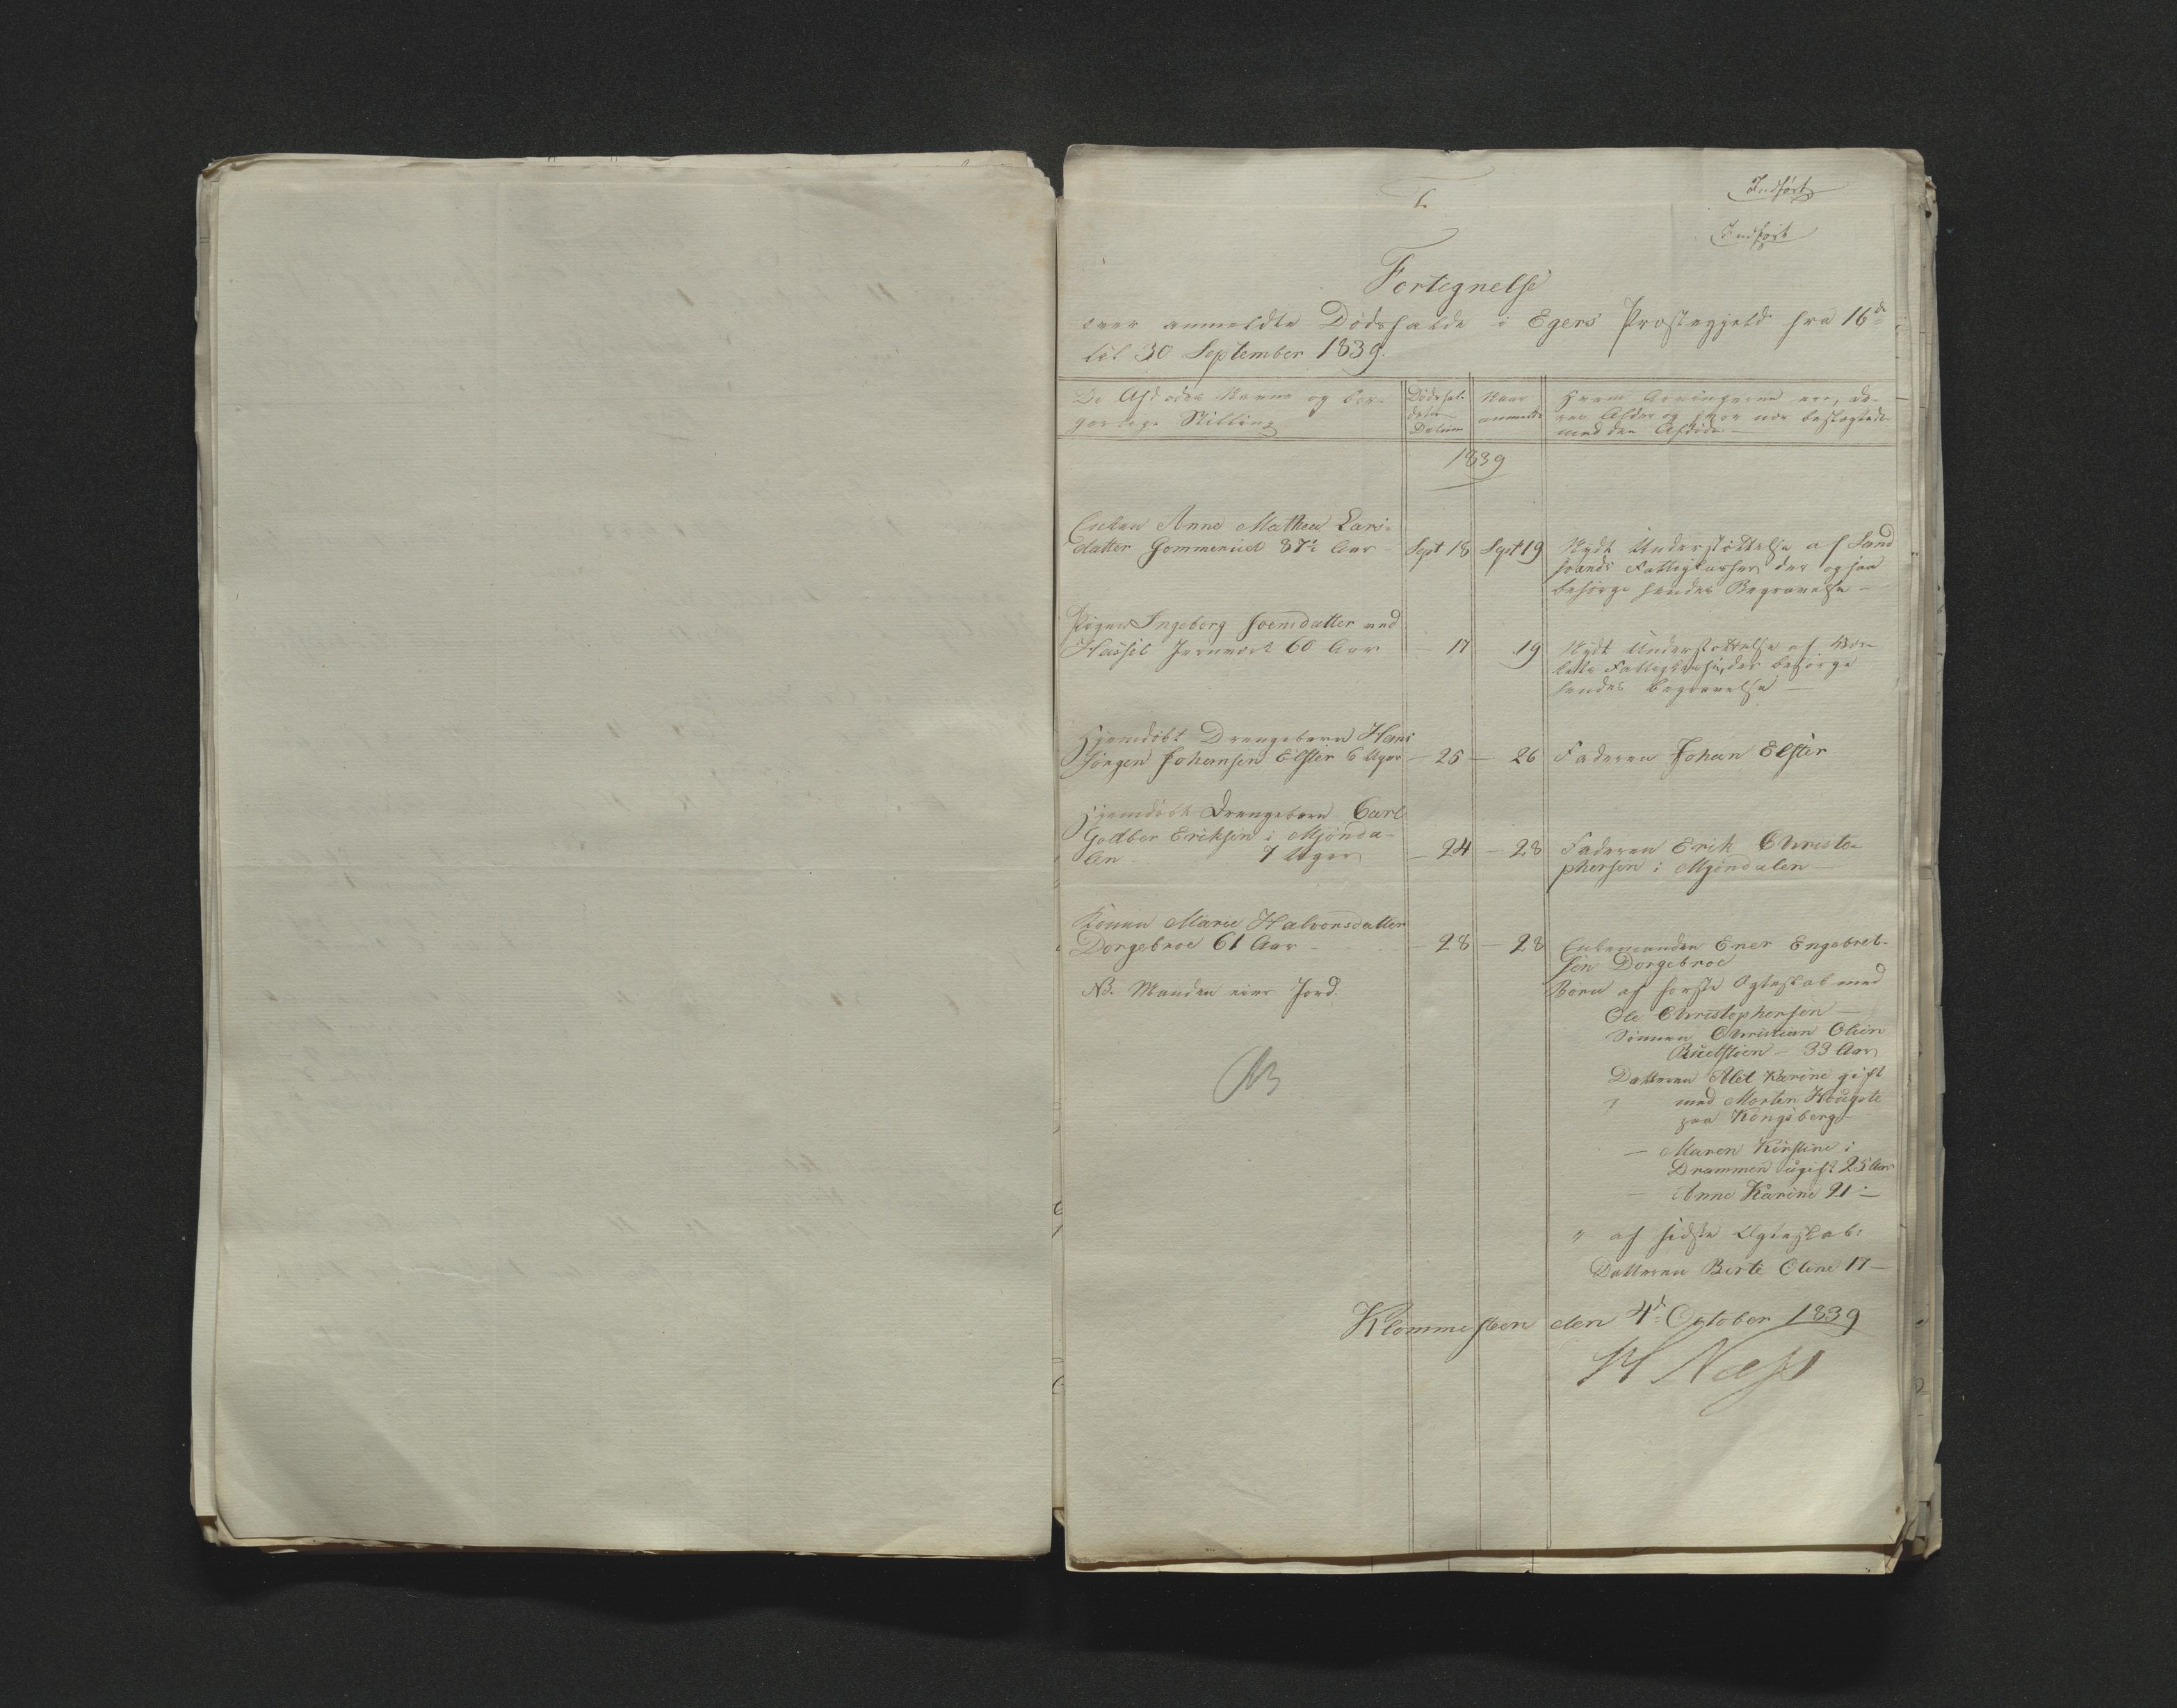 Indført
Indført
Fortegnelse
over anmeldte Dødsfalde i Egers Præstegjeld fra 16de
til 30 September 1839.
De Afdødes Navne og bor-
gerlige Stilling
Dødsfal-
dets
Datum
Naar
anmeldt
Hvem Arvingerne ere, de-
res Alder og hvor nær beslægtede
med den Afdøde
1839
Enken Anne Mathea Lars-
datter Gommerud 87½ Aar
Sept 18
Sept 19
Nydt Understøttelse af Sand
Fattigkasse, der ogsaa
besørge hendes Begravelse
Pigen Ingeborg Svendsdatter ved
Hassel Jernværk 60 Aar
- 17
19
Nydt Understøttelse af
Fattigkasse, der besørge
hendes Begravelse
Hjemdøbt Drengebarn Hans
Jörgen Johansen Elster 6 Uger
- 25
- 26
Faderen Johan Elster
Hjemdøbt Drengebarn Carl
Godber Eriksen i Mjönda-
len 7 Uger
- 24
- 28
Faderen Erik Christo-
phersen i Mjöndalen
Konen Maria Halvorsdatter
Dorgebroe 61 Aar
- 28
- 28
Enkemanden Ener Engebret-
sen Dorgebroe
NB. Manden eier Jord.
Børn af første Ægteskab med
Ole Christophersen
Sønnen Christian Olsen
33 Aar
Datteren Alet Karine gift
med Morten
paa Kongsberg
- Maren Kirstine i
Drammen ugift 25 Aar
- Anne Karine 21 -
" af sidste Ægteskab:
Datteren Berte Oline 17 -
NB
Klommesteen den 4d October 1839
H Næss